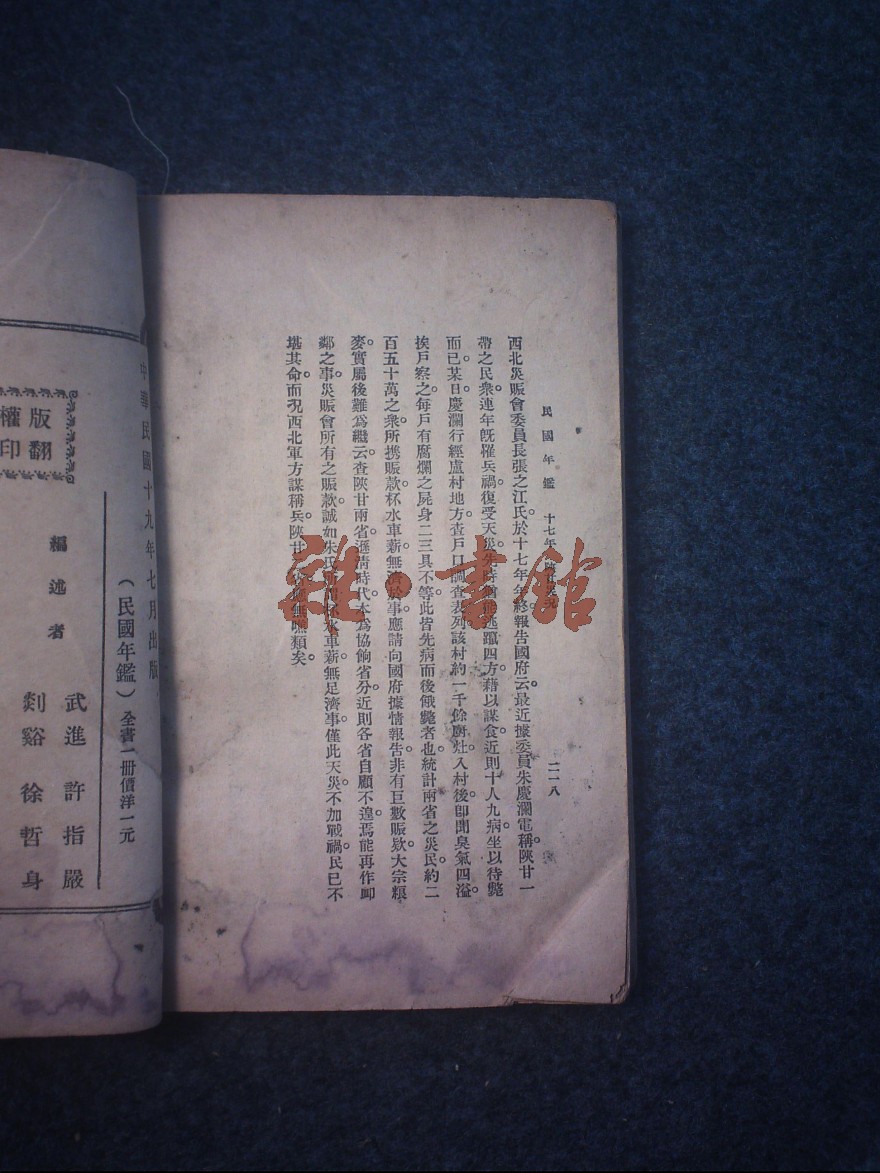 民國年鑑　十七年　　　　二一八
西北災賑會委員長張之江氏於十七年年終報告國府云。最近據委員朱慶瀾電稱。陝甘一
帶之民衆。連年旣罹兵禍。復受天災。先時　　逃竄四方。藉以謀食。近則十人九病。坐以待斃
而已。某日慶瀾行經盧村地方。查戶口調查表。列該村約一千餘廚灶。入村後卽聞臭氣四溢。
挨戶察之。每戶有腐爛之屍身二三具不等。此皆先病而後餓斃者也。統計兩省之災民。約二
百五十萬之衆。所携賑款。杯水車薪。無濟於事。應請向國府據情報告。非有巨數賑欵。大宗粮
麥。實屬後難爲繼云。查陝甘兩省。遜淸時代。本爲協餉省分。近則各省自顧不遑。焉能再作卹
鄰之事。災賑會所有之賑款。誠如朱氏所　杯水車薪。無足濟事。僅此天災。不加戰禍。民已不
堪其命。而況西北軍方謀稱兵。陝甘　　　無噍類矣。
雜·書館
中華民國十九年七月出版
（民國年鑑）全書一冊價洋一元
版權
翻印
編述者
武進　許指嚴
剡谿　徐哲身